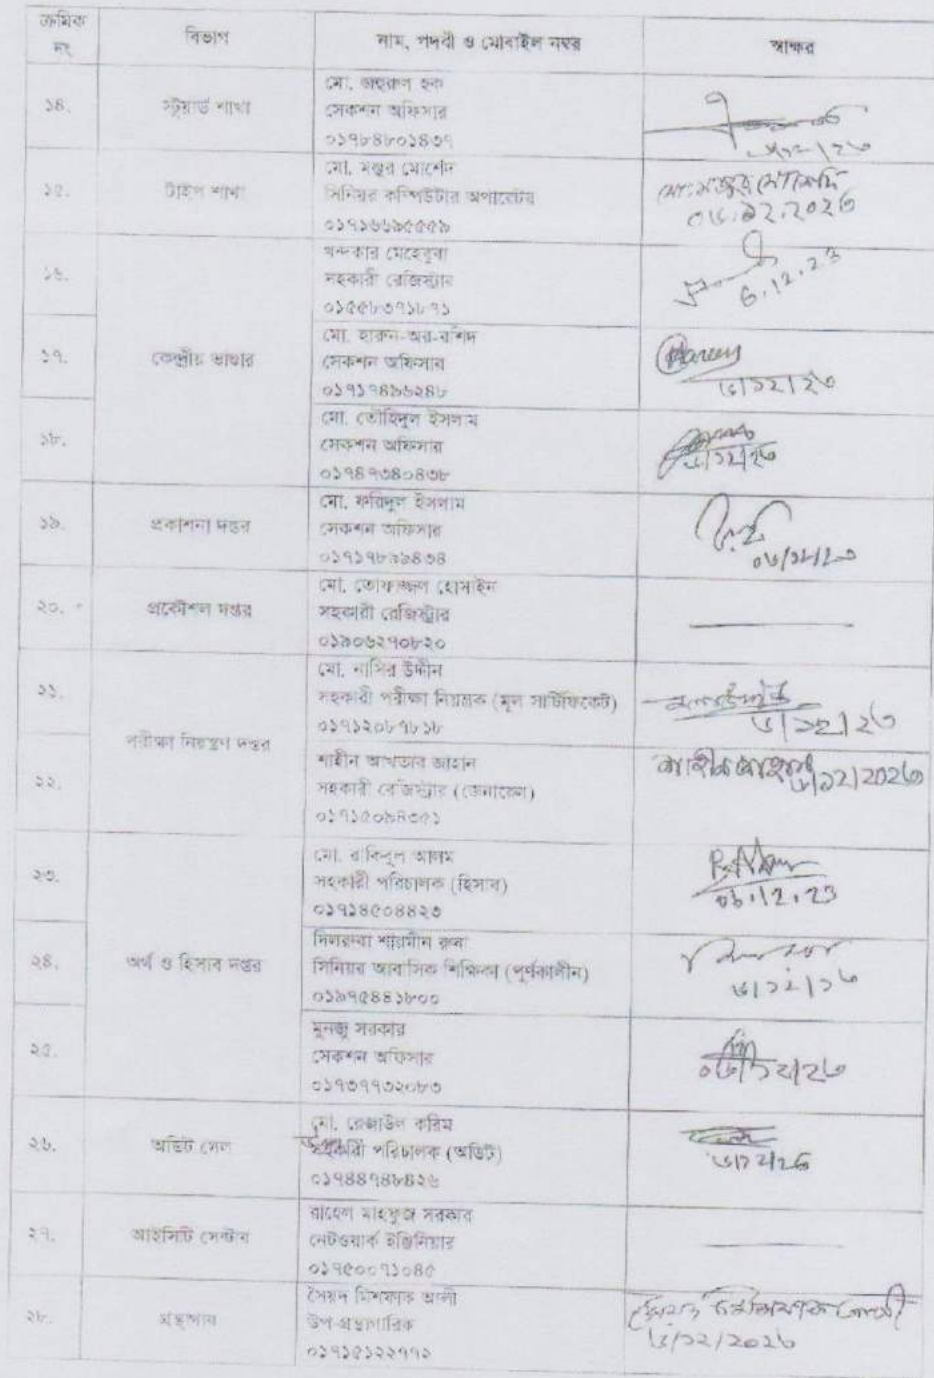 ক্রমিক
নং
বিভাগ
নাম, পদবী ও মোবাইল নম্বর
স্বাক্ষর
১৪.
স্ট্রয়ার্ড শাখা
মো. জহুরুল হক
সেকশন অফিসার
০১৭৮৪৮০১৪৩৭
১৫.
টাইপ শাখা
মো. মঞ্জুর মোর্শেদ
সিনিয়র কম্পিউটার অপারেটর
০১৭১৬৬৯৫৫৫৯
মো: মঞ্জুর মোর্শেদ
০৬.১২.২০২৩
১৬.
খন্দকার মেহেবুবা
সহকারী রেজিস্ট্রার
০১৫৫৮৩৭১৮৭১
6.12.23
১৭.
কেন্দ্রীয় ভান্ডার
মো. হারুন-অর-রশিদ
সেকশন অফিসার
০১৭১৭৪৯৬২৪৮
৬/১২/২৩
১৮.
মো. তৌহিদুল ইসলাম
সেকশন অফিসার
০১৭৪৭৩৪০৪৩৮
৬/১২/২৩
১৯.
প্রকাশনা দপ্তর
মো. ফরিদুল ইসলাম
সেকশন অফিসার
০১৭১৭৮৯৯৪৩৪
০৬/১২/২৩
২০.
প্রকৌশল দপ্তর
মো. তোফাজ্জল হোসাইন
সহকারী রেজিস্ট্রার
০১৯০৬২৭০৮২০
২১.
পরীক্ষা নিয়ন্ত্রণ দপ্তর
মো. নাসির উদ্দীন
সহকারী পরীক্ষা নিয়ন্ত্রক (মূল সার্টিফিকেট)
০১৭১২০৮৭৮১৮
৬/১২/২৩
২২.
শাহীন আখতার জাহান
সহকারী রেজিস্ট্রার (জেনারেল)
০১৭১৫০৯৪৩৫১
৬/১২/২০২৩
২৩.
মো. রাকিবুল আলম
সহকারী পরিচালক (হিসাব)
০১৭১৪৫০৪৪২৩
06.12.23
২৪.
অর্থ ও হিসাব দপ্তর
দিলরুবা শারমীন রুবা
সিনিয়র আবাসিক শিক্ষিকা (পূর্ণকালীন)
০১৯৭৫৪৪১৮০০
২৫.
মুনজু সরকার
সেকশন অফিসার
০১৭৩৭৭৩২০৮৩
০৬/১২/২৩
২৬.
অডিট সেল
মো. রেজাউল করিম
পরিচালক (অডিট)
০১৭৪৪৭৪৮৪২৬
৬/১২/২৩
২৭.
আইসিটি সেন্টার
রাহেল মাহফুজ সরকার
নেটওয়ার্ক ইঞ্জিনিয়ার
০১৭৫০০৭১০৪৫
২৮.
গ্রন্থাগার
সৈয়দ মিশফাক আলী
উপ-গ্রন্থাগারিক
০১৭১৫১২২৭৭২
৬/১২/২০২৩